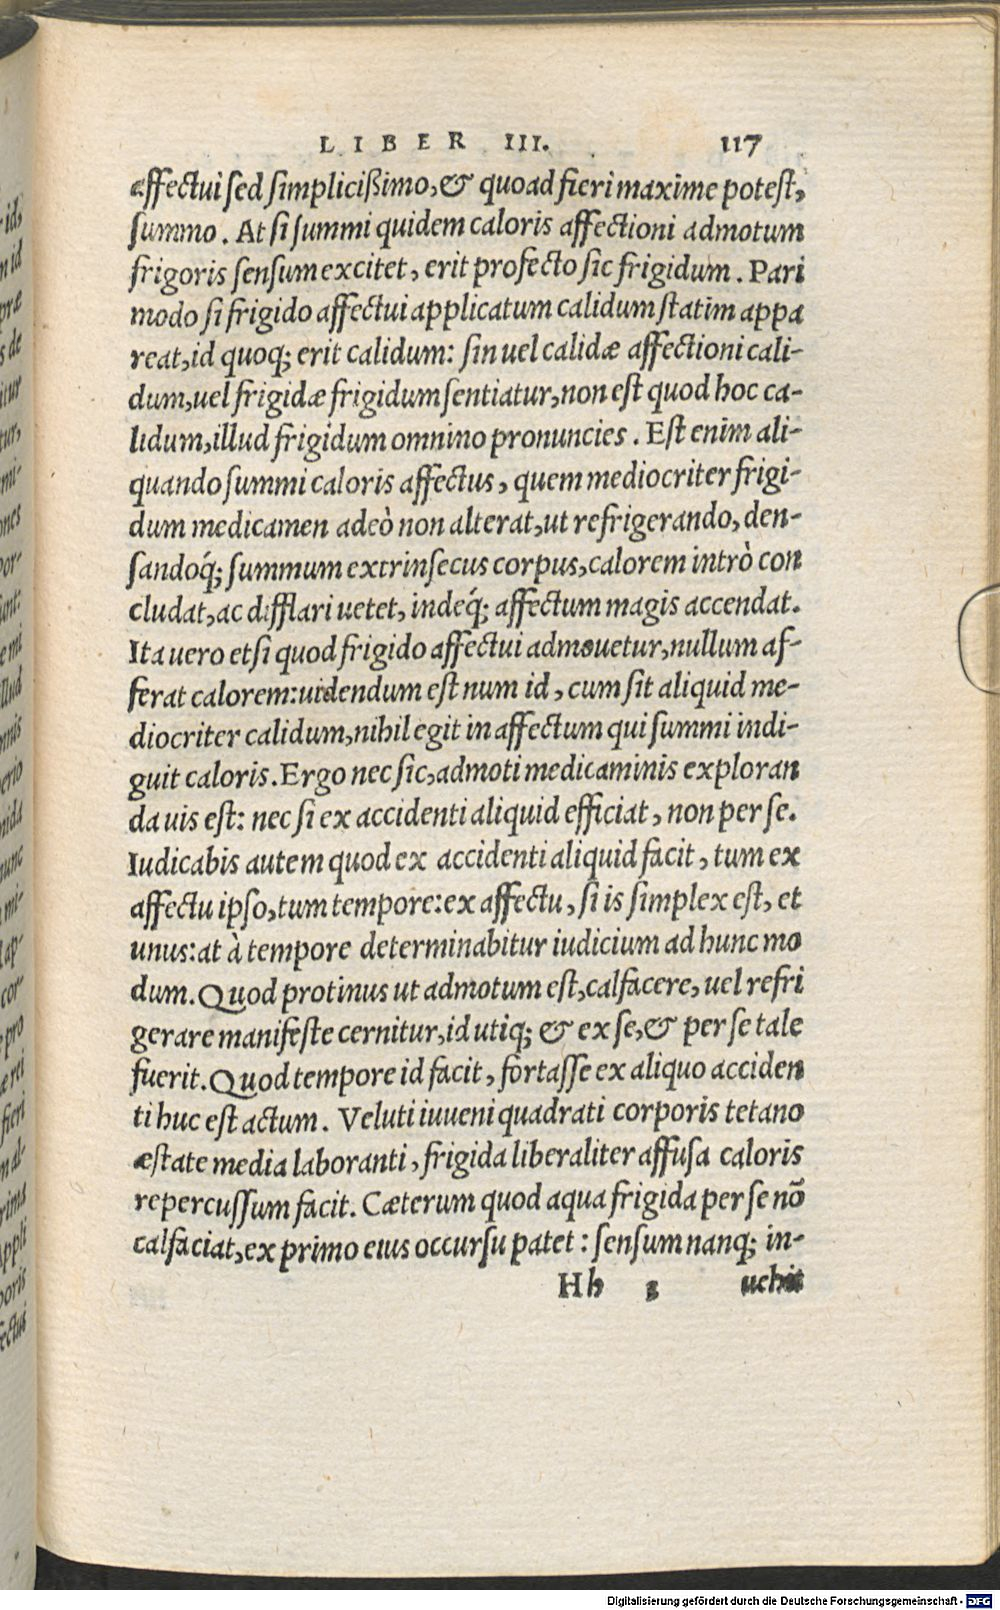 LIBER III. 117
affectui sed simplicißimo, & quoad fieri maxime potest,
summo. At si summi quidem caloris affectioni admotum
frigoris sensum excitet, erit profecto sic frigidum. Pari
modo si frigido affectui applicatum calidum statim appa
reat, id quoq; erit calidum: sin uel calidæ affectioni cali-
dum, uel frigidæ frigidum sentiatur, non est quod hoc ca-
lidum, illud frigidum omnino pronuncies. Est enim ali-
quando summi caloris affectus, quem mediocriter frigi-
dum medicamen adeò non alterat, ut refrigerando, den-
sandoq́; summum extrinsecus corpus, calorem intrò con
cludat, ac difflari uetet, indeq́; affectum magis accendat.
Ita uero etsi quod frigido affectui admouetur, nullum af-
ferat calorem: uidendum est num id, cum sit aliquid me-
diocriter calidum, nihil egit in affectum qui summi indi-
guit caloris. Ergo nec sic, admoti medicaminis exploran
da uis est: nec si ex accidenti aliquid efficiat, non per se.
Iudicabis autem quod ex accidenti aliquid facit, tum ex
affectu ipso, tum tempore: ex affectu, si is simplex est, et
unus: at à tempore determinabitur iudicium ad hunc mo
dum. Quod protinus ut admotum est, calfacere, uel refri
gerare manifeste cernitur, id utiq; & ex se, & per se tale
fuerit. Quod tempore id facit, fortasse ex aliquo acciden
ti huc est actum. Veluti iuueni quadrati corporis tetano
æstate media laboranti, frigida liberaliter affusa caloris
repercussum facit. Cæterum quod aqua frigida per se nō
calfaciat, ex primo eius occursu patet: sensum nanq; in-
Hh 3 uehit
Digitalisierung gefördert durch die Deutsche Forschungsgemeinschaft - DFG